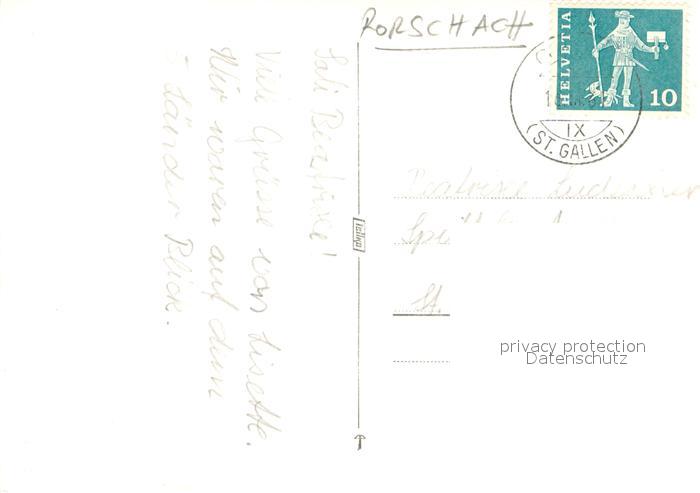 RORSCHACH
HELVETIA
10
IX
(ST. GALLEN)
Sali Beatrixe!
Viili Grüsse von Lisette.
Wir waren auf dem
5 Länder Blick.
Beatrixe
St.
privacy protection
Datenschutz